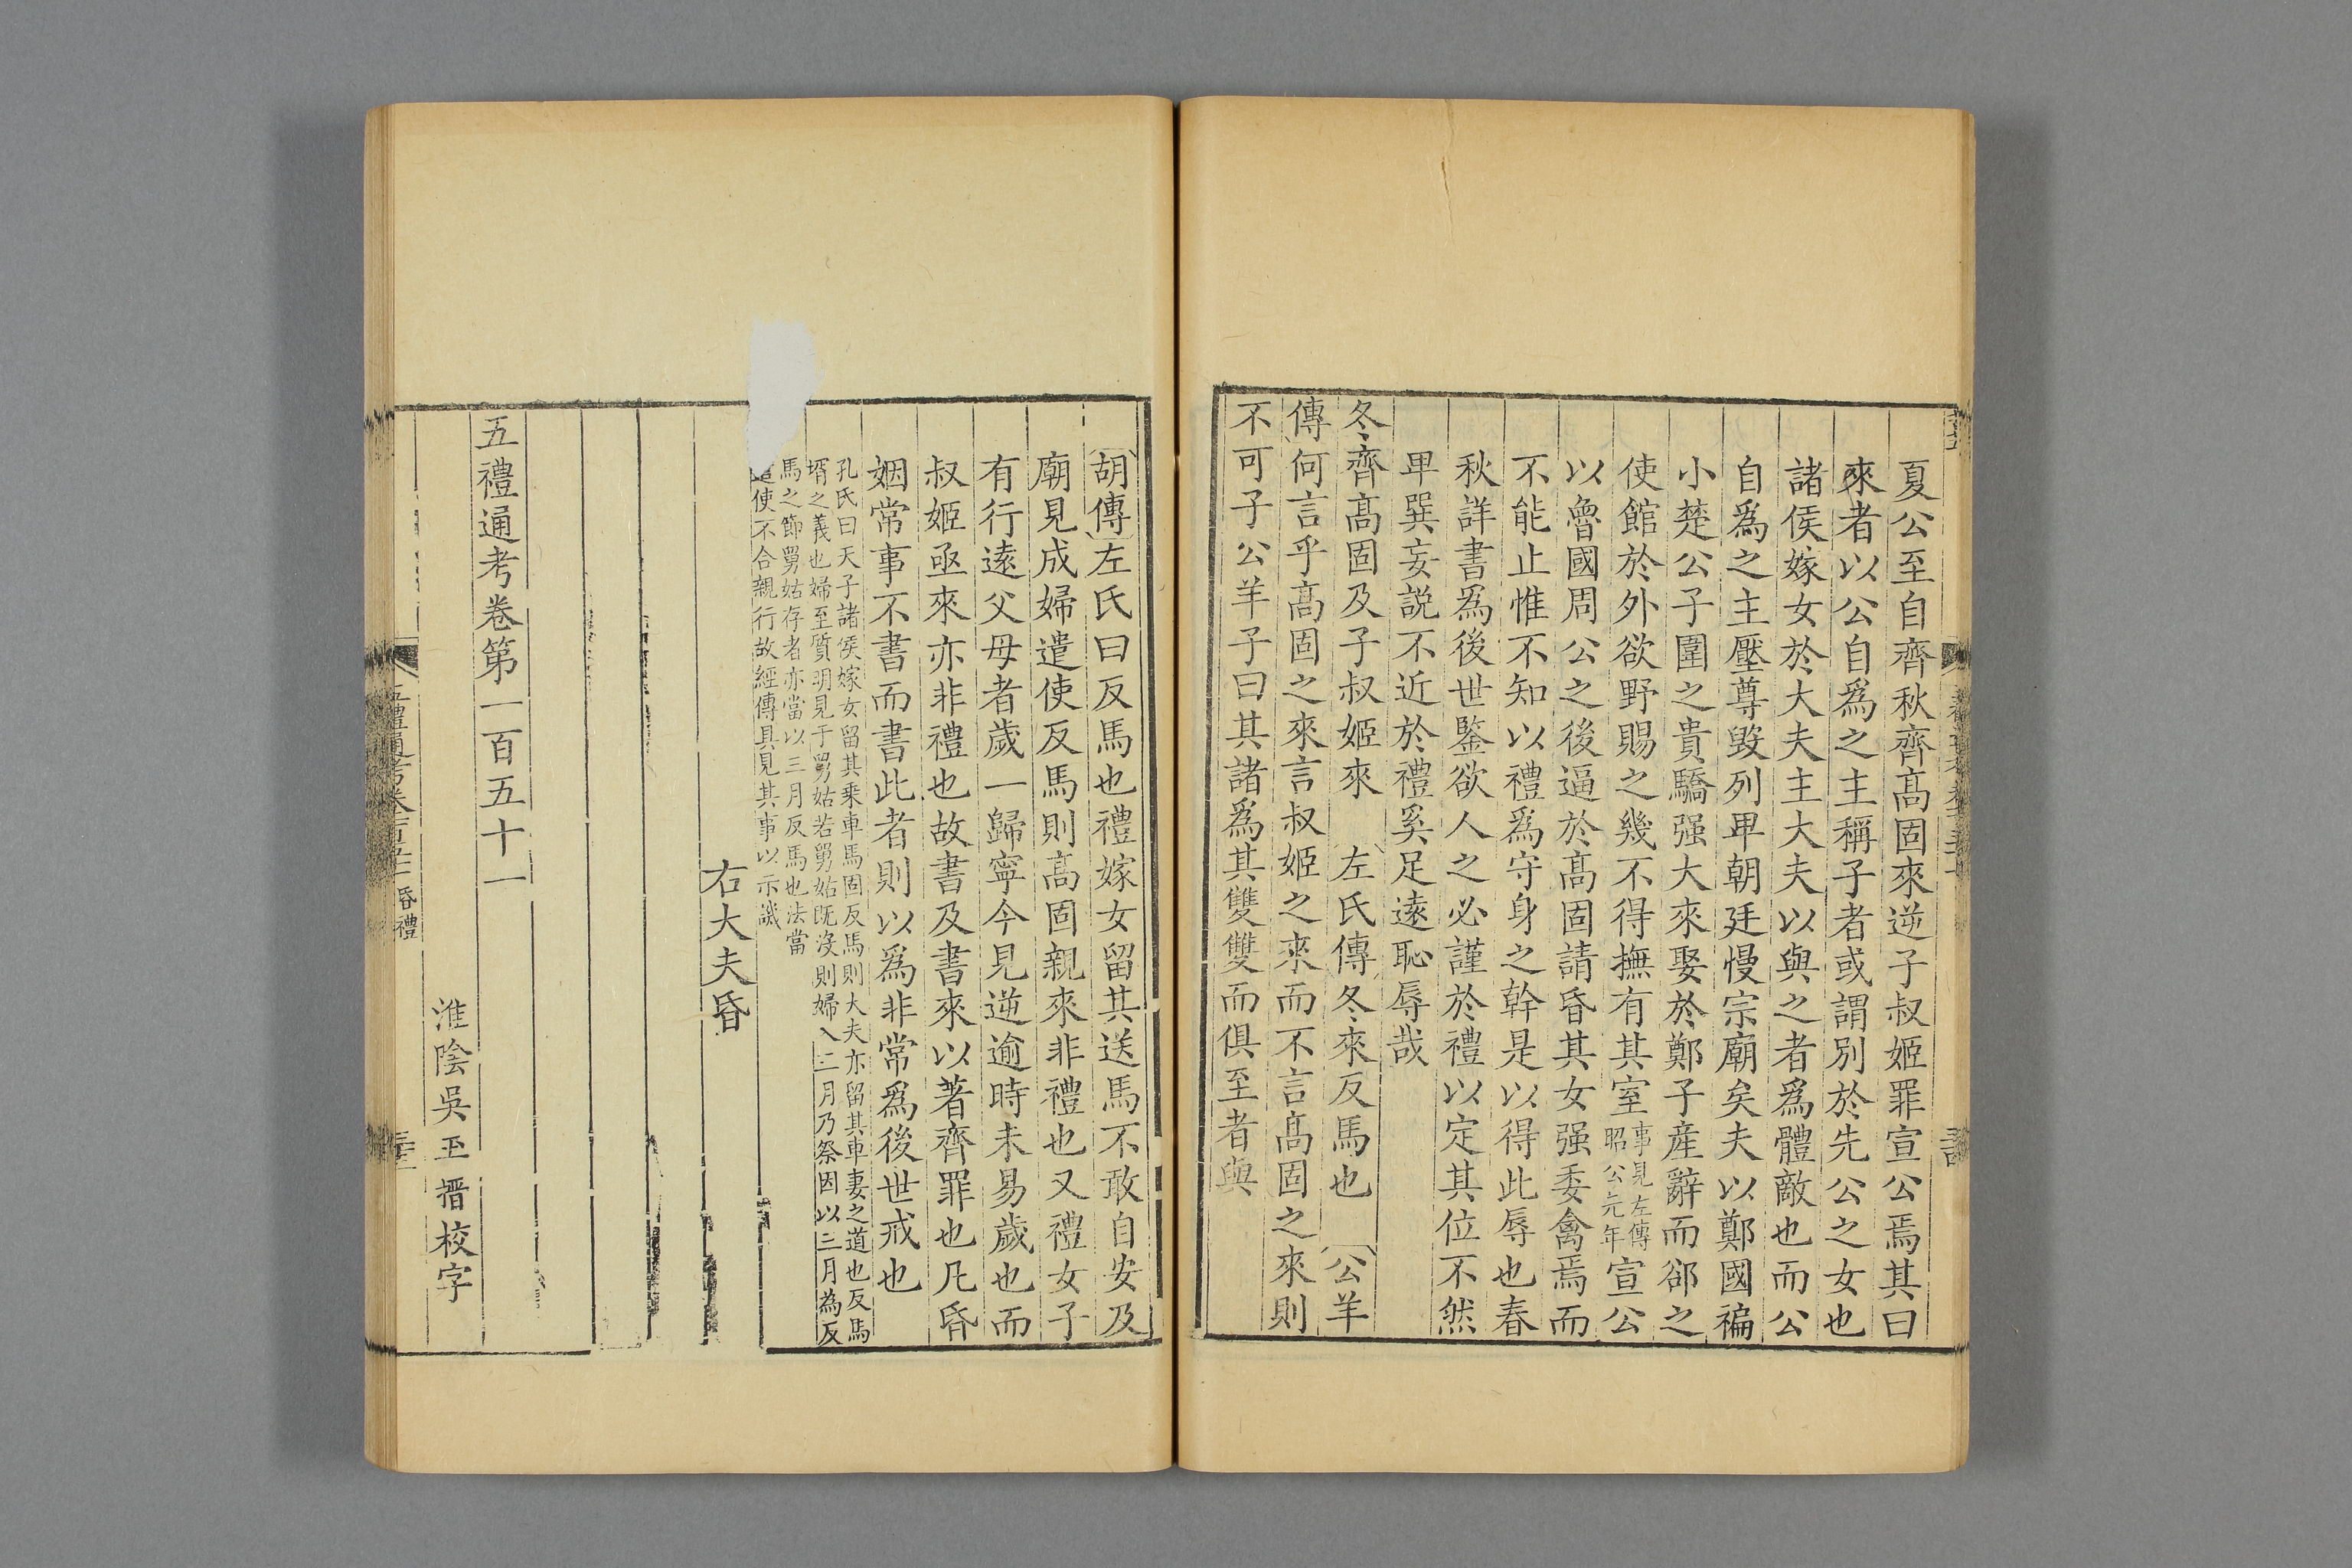 夏公至自齊秋齊髙固來逆子叔姬罪宣公焉其曰
來者以公自爲之主稱子者或謂別於先公之女也
諸侯嫁女於大夫主大夫以與之者爲體敵也而公
自爲之主壓尊毀列卑朝廷慢宗廟矣夫以鄭國褊
小楚公子圍之貴驕强大來娶於鄭子產辭而郤之
使館於外欲野賜之幾不得撫有其室事見左傳昭公元年宣公
以魯國周公之後逼於髙固請昏其女强委禽焉而
不能止惟不知以禮爲守身之幹是以得此辱也春
秋詳書爲後世鑒欲人之必謹於禮以定其位不然
卑巽妄説不近於禮奚足遠恥辱哉
冬齊髙固及子叔姬來 左氏傳冬來反馬也 公羊
傳何言乎髙固之來言叔姬之來而不言髙固之來則
不可子公羊子曰其諸爲其雙雙而俱至者與
胡傳左氏曰反馬也禮嫁女留其送馬不敢自安及
廟見成婦遣使反馬則髙固親來非禮也又禮女子
有行遠父母者歲一歸寧今見逆逾時未易歲也而
叔姬亟來亦非禮也故書及書來以著齊罪也凡昏
姻常事不書而書此者則以爲非常爲後世戒也
孔氏曰天子諸侯嫁女留其乘車馬固反馬則大夫亦留其車妻之道也反馬
壻之義也婦至質明見于舅姑若舅姑既沒則婦入三月乃祭因以三月為反
馬之節舅姑存者亦當以三月反馬也法當
使不合親行故經傳具見其事以示譏
右大夫昏
五禮通考卷第一百五十一
淮陰吳玉搢校字
昏禮